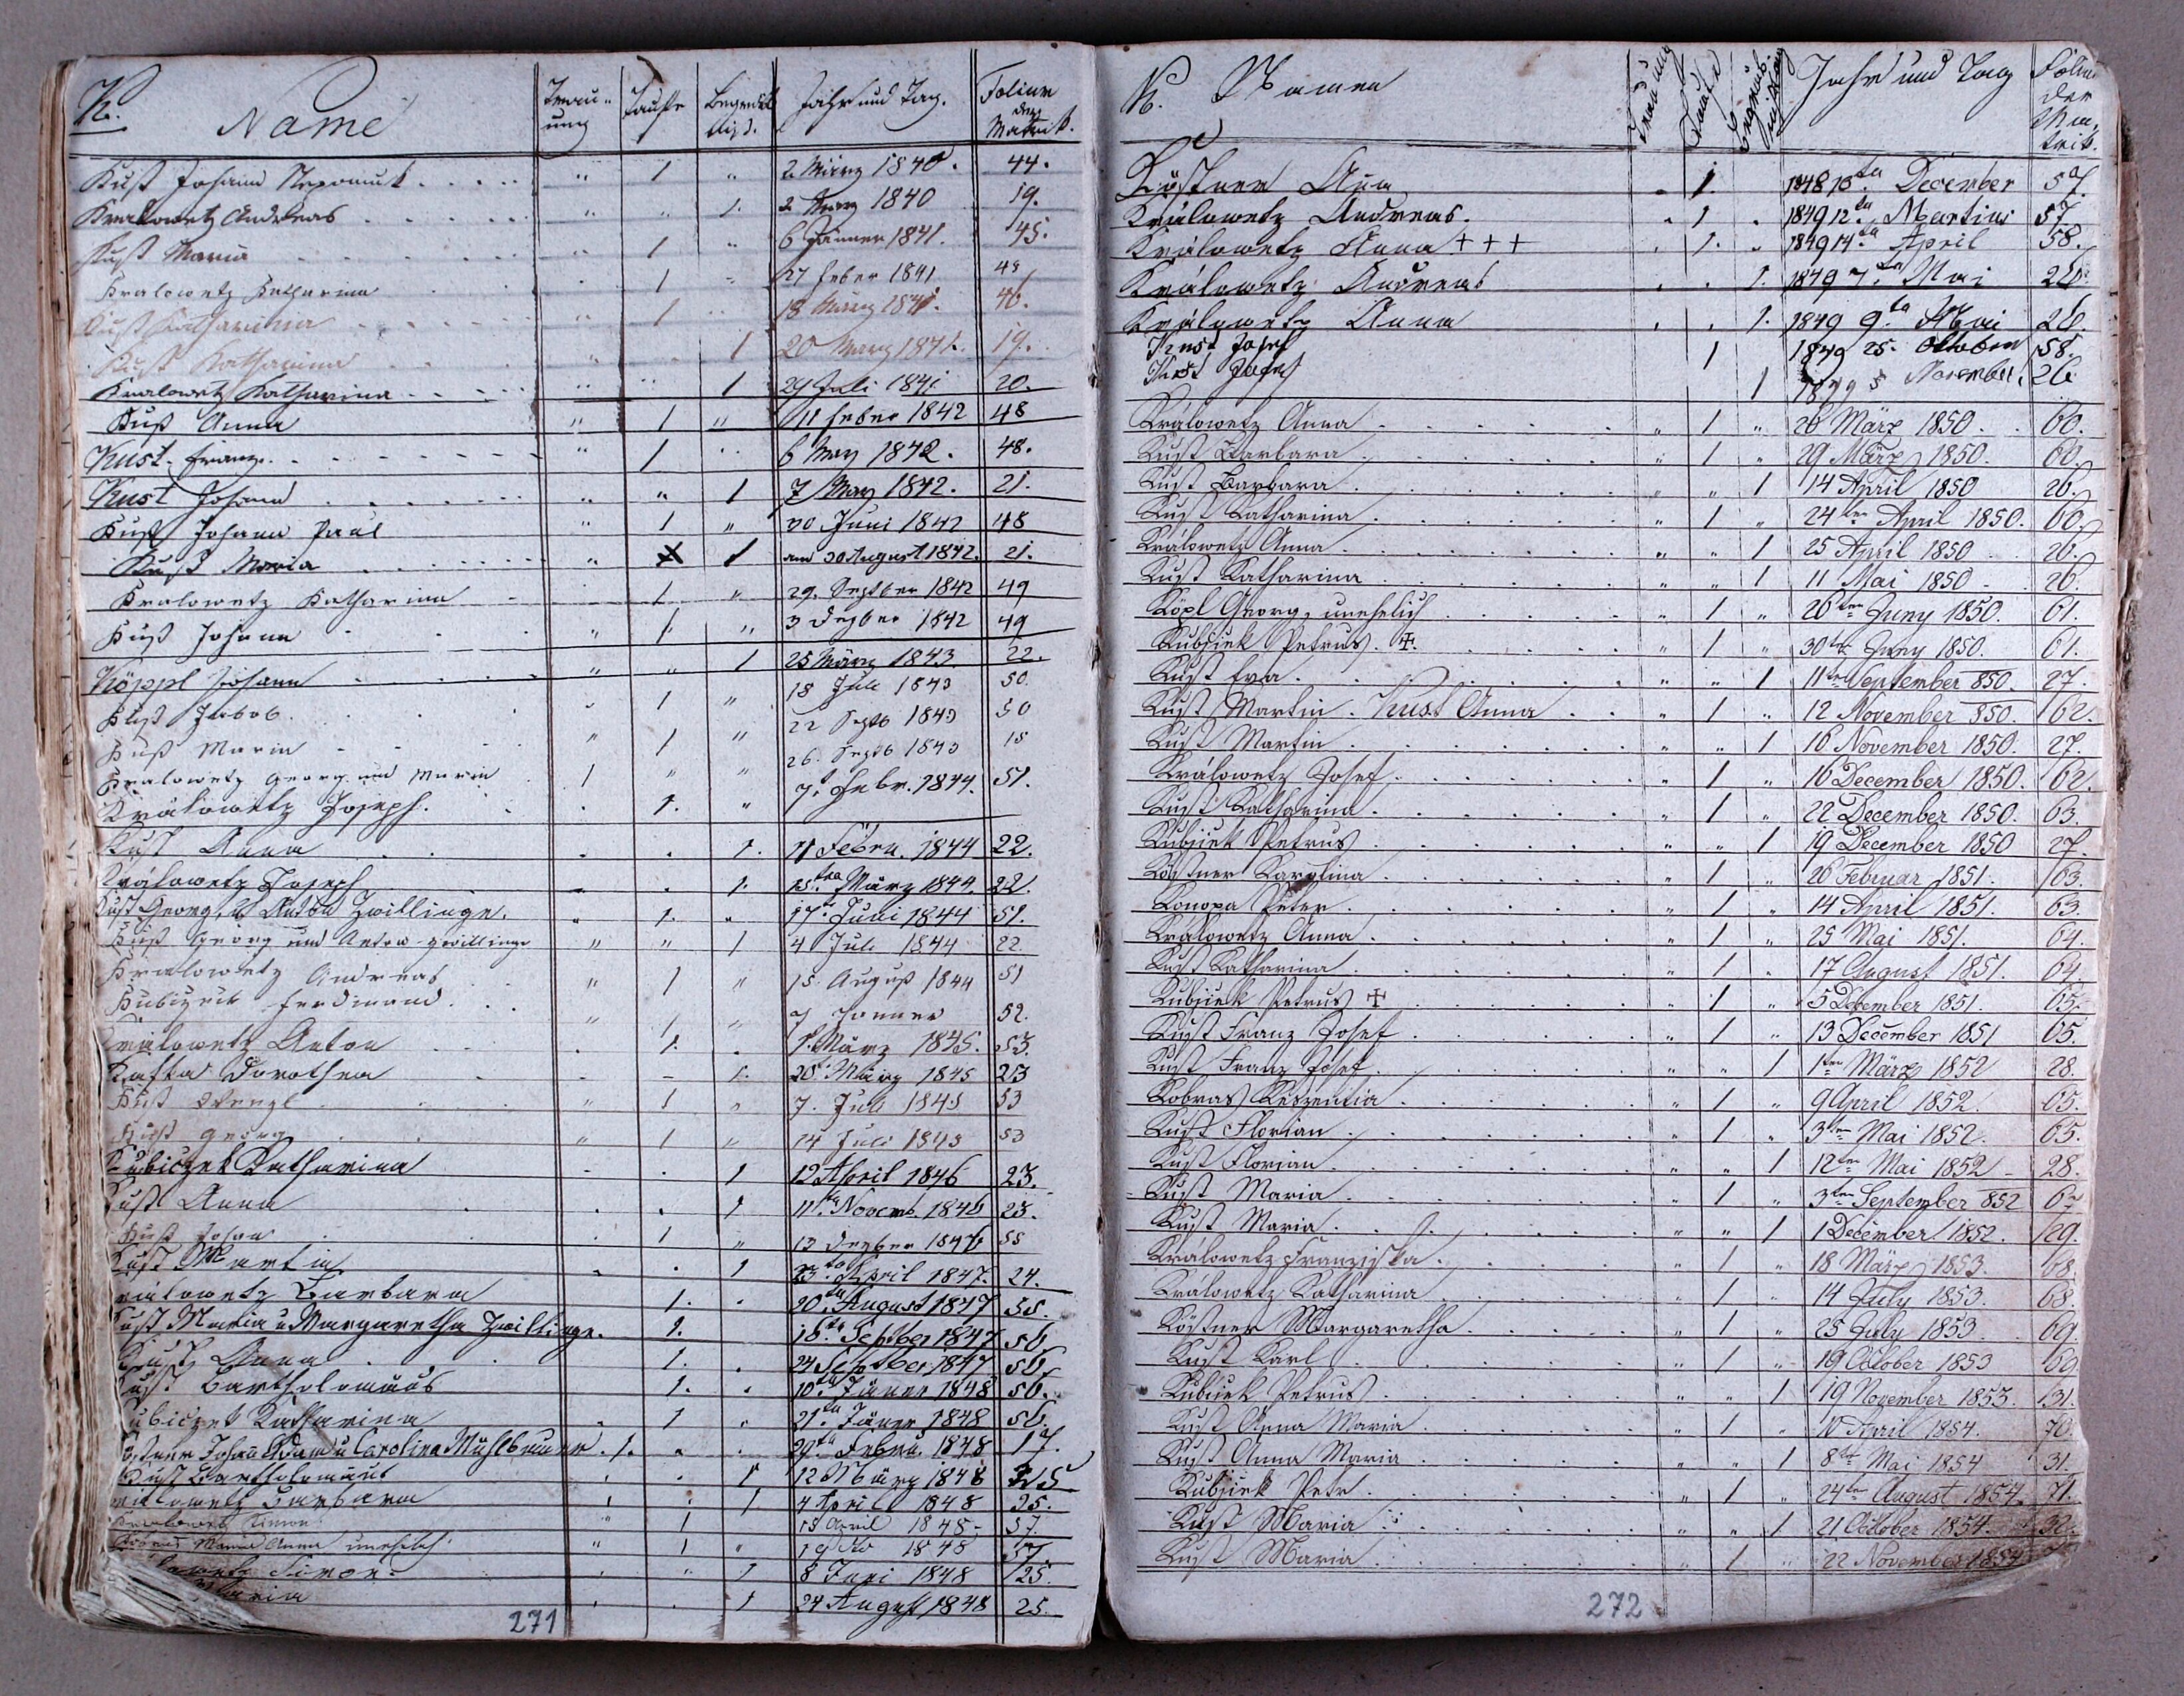 K. Name Trau- ung Taufe Begräbniß. Jahr und Tag. Folium der Matrik.
Kust Johann Nepomuk . . . . „ 1 „ 2 März 1840. 44.
Kralowetz Andreas . . . . . „ „ 1. 2 März 1840 19.
Kust Maria . . . . „ 1 „ 6 Jänner 1841. 45.
Kralowetz Katharina . . 1 „ 27 Feber 1841
Kust Katharina . . . . . „ 1 „ 18 März 1841. 46.
Kust Katharina . . . „ . 1 20 März 1841. 19.
Kralowetz Katharina . . . . „ „ 1 24 Juli 1841 20.
Kust Anna „ 1 „ 11 Feber 1842 48
Kust Franz . . . . . . . „ 1 „ 6 May 1842. 48.
Kust Johann . . . . . . „ „ 1 7 May 1842. 21.
Kust Johann Paul „ 1 „ 30 Juni 1842 48
Kust Maria . . . . . . . „ 1 am 30 August 1842. 21.
Kralowetz Katharina . . 1 „ 29. Septber 1842 49
Kust Johann . . . „ 1. „ 3 Dezber 1842 49
Köppl Johann . . . . „ „ 1 25 März 1843 22.
Kust Jakob . . . . „ 1 „ 18 Juli 1843 50.
Kust Maria . . . . „ 1 „ 22 Septb 1843 50
Kralowetz Georg und Maria . 1 „ „ 26. Septb 1843 15
Králowetz Joseph. . . 1. „ 7t. Febr. 1844. 51.
Kust Anna . . . . 1. 11 Febru. 1844 22.
Králowetz Joseph . . . 1. 15ten März 1844. 22.
Kust Georg, u Anton Zwillinge. „ 1. „ 17t. Juni 1844 51.
Kust Georg und Anton Zwillinge „ „ 1 4 Juli 1844 22.
Kralowetz Andreas „ 1 „ 15. August 1844 51
Kubiczek Ferdinand . . „ 1 „ 7 Jänner 52.
Králowetz Anton . . . 1. . 1t. März 1845. 53.
Kafka Dorothea . . . – 1. 20t März 1845 23
Kust Wenzl . . . „ 1 „ 7. Juli 1845 53
Kust Georg . . „ 1 „ 14 Juli 1845 53
Kubiczek Katharina . . 1 12 April 1846 23.
Kust Anna . . . . 1 11ten Novemb. 1846 23.
Kust Johan . . . . 1 „ 13 Dezber 1846 55
Kust Martin . . 1 23ten April 1847. 24.
Králowetz Barbara 1. . 20ten August 1847 55.
Kust Maria u Margaretha Zwillinge. 1. 16ten Septber 1847 56
Kust Anna . . . . 1. . 24 Septber 1847 56
Kust Bartholomäus 1. . 10ten Jäner 1848 56.
Kubiczek Katharina . 1 „ 21ten Jäner 1848 56.
Köstner Johañ Adam u Carolina Mühlbauer . 1. „ . 29ten Febru. 1848 17.
Kust Bartholomäus . . 1 12 März 1848 25
Králowetz Barbara . . 1 4 April 1848 25.
Kralowetz Simon „ 1 15 April 1848 57.
Maria Anna unehlich „ 1 „ 19 do 1848 57
Kralowetz Simon . . „ 1 8 Juni 1848 25.
Maria . . 1 24 August 1848 25.
271
K. Namen Trauung Taufe Begräbniß Jahr und Tag Folium der Matrik.
Köstner Anna . 1. 1848 13ten December 57.
Králowetz Andreas. . 1 . 1849 12ten Martius 57
Králowetz Anna +++ . 1. „ 1849 14ten April 58.
Králowetz Andreas . . 1. 1849 7ten Mai 26.
Králowetz Anna . . 1. 1849 9ten Mai 26.
Kust Josef 1 1849 25. Oktober 58.
Kust Josef 1 1849 5 November. 26
Králowetz Anna . . . . . . „ 1 „ 26 März 1850 . . 60.
Kust Barbara . . . . . . „ 1 „ 29 März 1850. 60.
Kust Barbara . . . . . . „ „ 1 14 April 1850 26.
Kust Katharina . . . . . . „ 1 „ 24ten April 1850. 60.
Králowetz Anna . . . . . . „ „ 1 25 April 1850 26.
Kust Katharina . . . . . . „ „ 1 11 Mai 1850 . 26.
Köpl Georg, unehelich . . . . . „ 1 „ 26ten Juny 1850. 61.
Kubjiek Petrus. + . . . . . „ 1 „ 30ten Juny 1850. 61.
Kust Eva . . . . . . . „ „ 1 11ten September 850. 27.
Kust Martin . Kust Anna . . „ 1 „ 12 November 850. 62.
Kust Martin . . . . . . „ „ 1 16 November 1850. 27.
Králowetz Josef . . . . . . „ 1 „ 16 December 1850. 62.
Kust Katharina . . . . . . „ 1 „ 22 December 1850. 63.
Kubjiek Petrus . . . . . . „ „ 1 19 December 1850 27.
Köstner Karolina . . . . . . „ 1 „ 26 Februar 1851. 63.
Konopa Peter . . . . . . „ 1 „ 14 April 1851. 63.
Králowetz Anna . . . . . . „ 1 „ 25 Mai 1851. 64.
Kust Katharina . . . . . . „ 1 „ 17 August 1851. 64.
Kubjiek Petrus + . . . . . „ 1 „ 5 December 1851. 65.
Kust Franz Josef . . . . . . „ 1 „ 13 December 1851 65.
Kust Franz Josef . . . . . . „ „ 1 1ten März 1852 28.
Kobras Kreszentia . . . . . . „ 1 „ 9 April 1852. 65.
Kust Florian . . . . . . „ 1 „ 3ten Mai 1852. 65.
Kust Florian . . . . . . „ „ 1 12ten Mai 1852 28.
Kust Maria . . . . . . „ 1 „ 3ten September 852
Kust Maria . . . . . . „ „ 1 1 December 1852. 29.
Králowetz Franziska . . . . . „ 1 „ 18 März 1853. 68.
Králowetz Katharina . . . . . „ 1 „ 14 July 1853. 68.
Köstner Margaretha . . . . . „ 1 „ 25 July 1853. 69.
Kust Karl . . . . . . „ 1 „ 19 October 1853
Kubjiek Petrus . . . . . . „ „ 1 19 November 1853. 31.
Kust Anna Maria . . . . . . „ 1 „ 10 April 1854. 70.
Kust Anna Maria . . . . . . „ „ 1 8te Mai 1854 31.
Kubjiek Petr . . . . . . „ 1 „ 24ten August 1854. 71.
Kust Maria . . . . . . „ „ 1 21 October 1854. 32.
Kust Maria . . . . . . „ 1 „ 22 November 1854
272